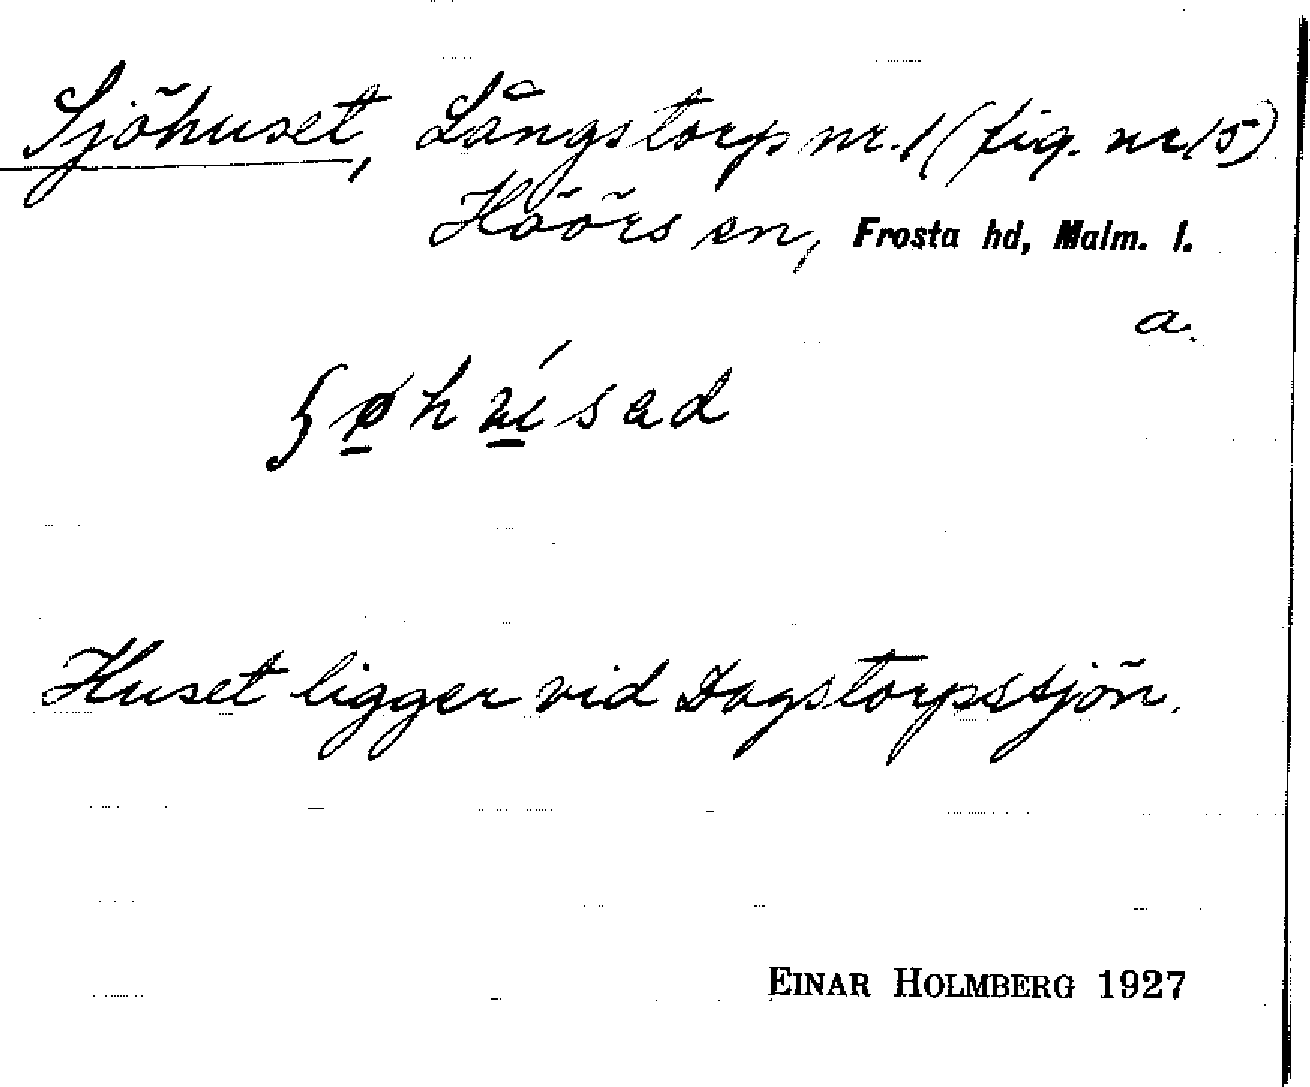 Sjöhuset, Långstorp nr. 1 (fig. nr 15)
Höörs sn, Frosta hd, Malm. l.
a.
Huset ligger vid Dagstorpssjön.
EINAR HOLMBERG 1927